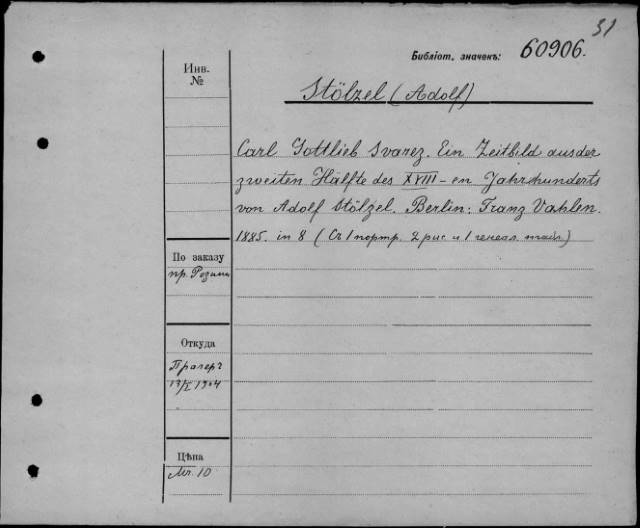 31
Библіот. значекъ: 60906.
Инв.
№
Stölzel (Adolf)
Carl Gottlieb Svarez. Ein Zeitbild aus der
zweiten Hälfte des XVIII-en Jahrhunderts
von Adolf Stölzel. Berlin: Franz Vahlen.
1885. in 8 (Съ 1 портр. 2 рис. и 1 генеал. табл.)
По заказу
пр. Розина
Откуда
Прагеръ
13/I 1904
Цѣна
Mr. 10